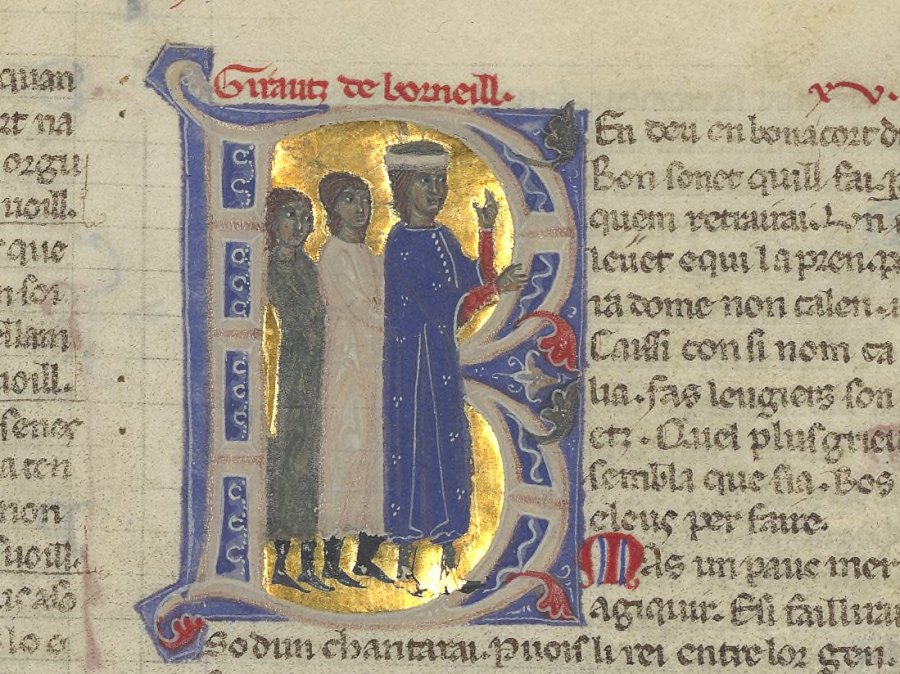 quan
rt na
orgu
uoill.
que
n sor
ellam
noill.
senes
a ten
non
suoill.
lo o
Girautz de borneill. XV.
En deu en bonacort di
Bon sonet quill fai. p
quem retrairai. Un
leuet equi la pren. p
ra dome non calen.
Caissi con si nom ca
lia. fas leugiers son
etz. Quel plus grieu
sembla que sia. Bos
eleus per faire.
Mas un pauc mer
agiqur. Esi faillira
So dun chantarai. Puois li rei entre lor gen.